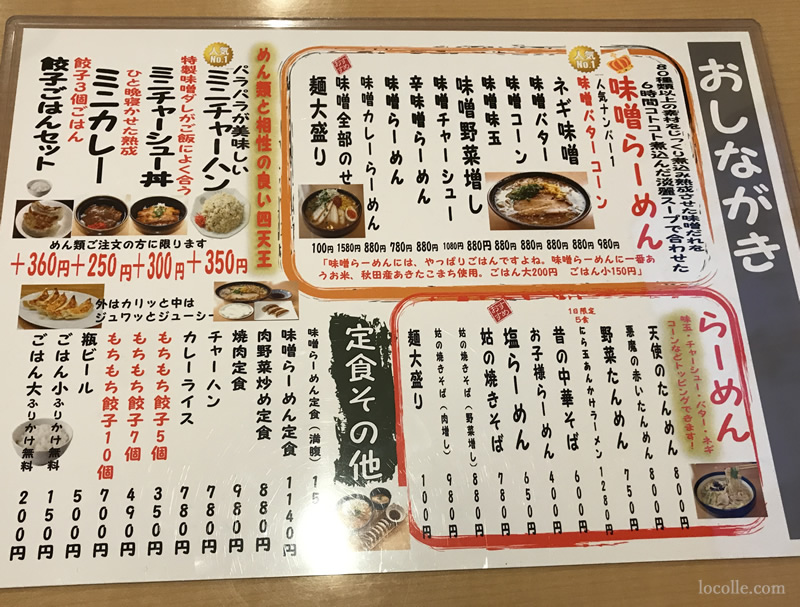 おしながき
80種類以上の素材をじっくり煮込み熟成させた味噌だれを
6時間コトコト煮込んだ淡麗スープで合わせた
味噌らーめん
人気
No.1
人気ナンバー1
味噌バターコーン 980円
ネギ味噌 880円
味噌バター 880円
味噌コーン 880円
味噌味玉 880円
味噌野菜増し 880円
味噌チャーシュー 1080円
辛味噌らーめん 880円
味噌らーめん 780円
味噌カレーらーめん 880円
おすすめ
味噌全部のせ 1580円
麺大盛り 100円
「味噌らーめんには、やっぱりごはんですよね。味噌らーめんに一番あ
うお米、秋田産あきたこまち使用。ごはん大200円 ごはん小150円」
めん類と相性の良い四天王
人気
No.1
パラパラが美味しい
ミニチャーハン
+350円
特製味噌ダレがご飯によく合う
ミニチャーシュー丼
+300円
ひと晩寝かせた熟成
ミニカレー
+250円
餃子3個ごはん
餃子ごはんセット
+360円
めん類ご注文の方に限ります
外はカリッと中は
ジュワッとジューシー
らーめん
味玉・チャーシュー・バター・ネギ
コーンなどトッピングできます!
天使のたんめん 800円
悪魔の赤いたんめん 800円
野菜たんめん 750円
1日限定
5食
にら玉あんかけラーメン 1280円
昔の中華そば 600円
お子様らーめん 400円
塩らーめん 650円
おすすめ
姑の焼きそば 780円
姑の焼きそば(野菜増し) 880円
姑の焼きそば(肉増し) 980円
麺大盛り 100円
定食その他
味噌らーめん定食(満腹) 15
味噌らーめん定食 1140円
肉野菜炒め定食 880円
焼肉定食 980円
チャーハン 780円
カレーライス 780円
もちもち餃子5個 350円
もちもち餃子7個 490円
もちもち餃子10個 700円
瓶ビール 500円
ごはん小 ふりかけ無料 150円
ごはん大 ふりかけ無料 200円
locolle.com